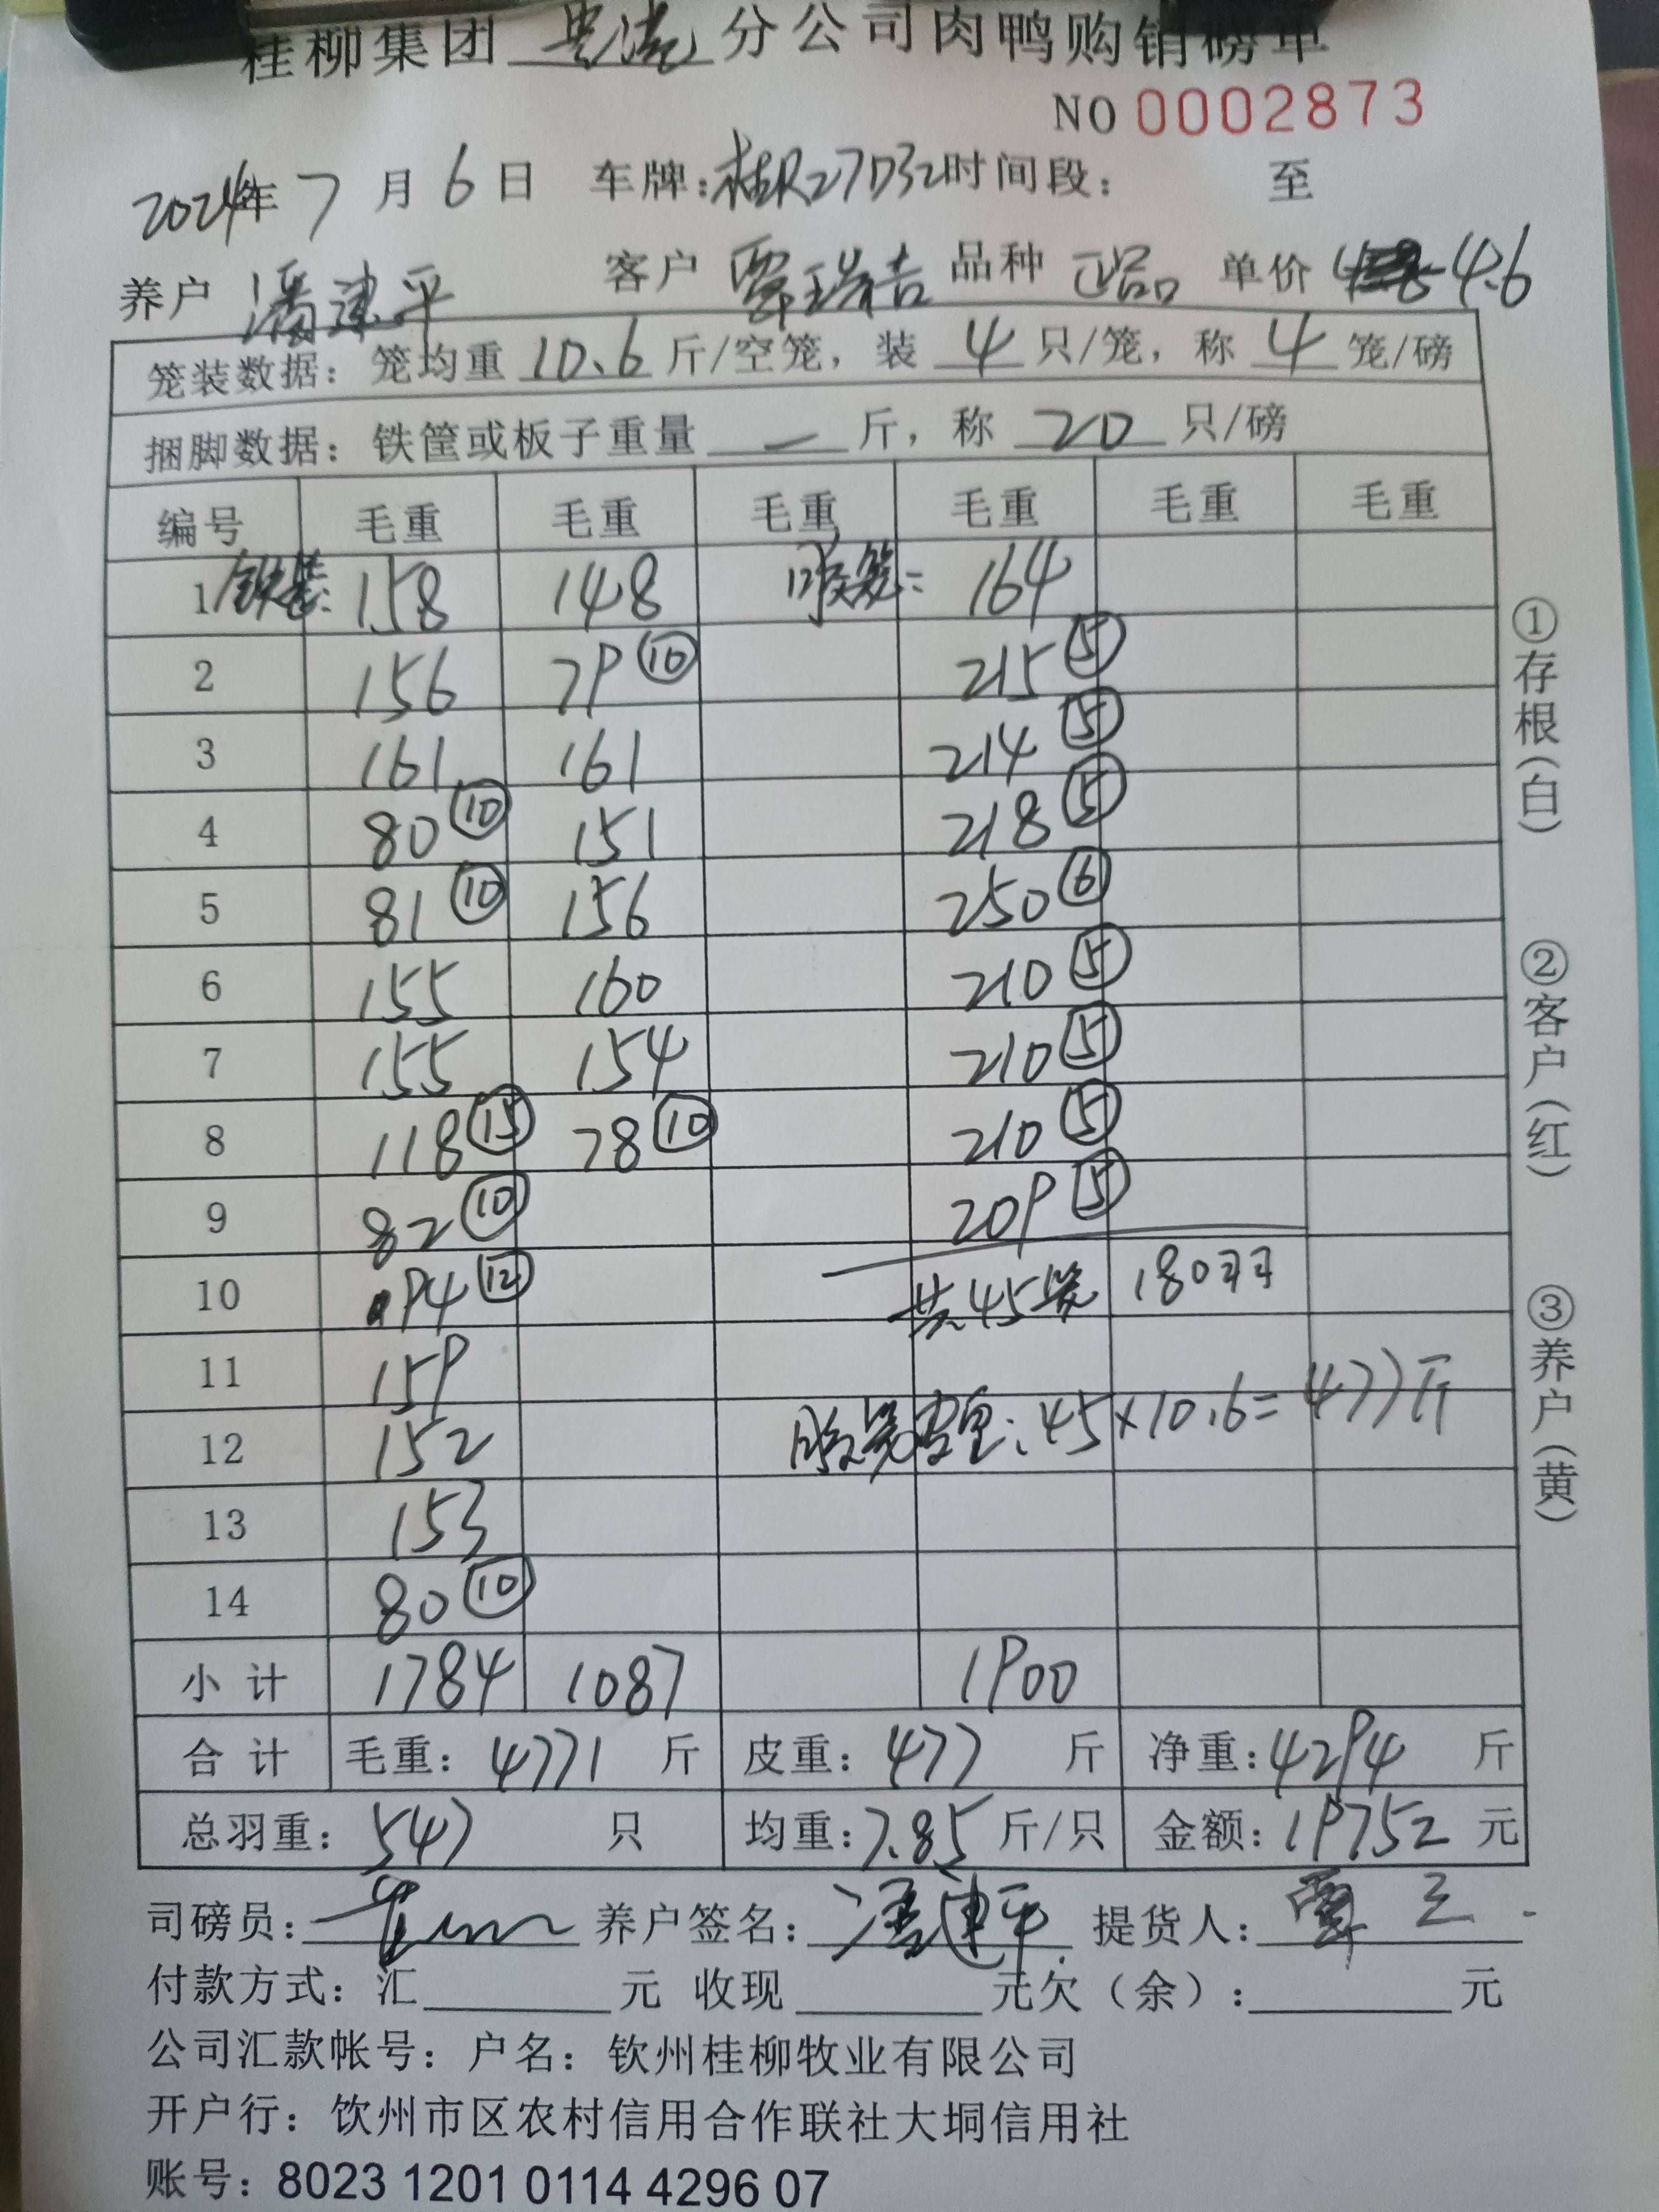 桂柳集团 贵港 分公司肉鸭购销磅单
NO 0002873
2024年 7 月 6 日 车牌:桂R27D32 时间段: 至
养户 潘建平 客户 覃瑞吉 品种 正品 单价 4.6
笼装数据: 笼均重 10.6 斤/空笼, 装 4 只/笼, 称 4 笼/磅
捆脚数据: 铁筐或板子重量 — 斤, 称 20 只/磅
编号 毛重 毛重 毛重 毛重 毛重 毛重
1 铁笼: 158 148 胶笼: 164
2 156 79 ⑩ 215 ⑤
3 161 161 214 ⑤
4 80 ⑩ 151 218 ⑤
5 81 ⑩ 156 250 ⑥
6 155 160 210 ⑤
7 155 154 210 ⑤
8 118 ⑮ 78 ⑩ 210 ⑤
9 82 ⑩ 209 ⑤
10 94 ⑫ 共45笼 180羽
11 159
12 152 胶笼皮重: 45×10.6=477斤
13 153
14 80 ⑩
小 计 1784 1087 1900
合 计 毛重: 4771 斤 皮重: 477 斤 净重: 4294 斤
总羽重: 547 只 均重: 7.85 斤/只 金额: 19752 元
司磅员: 养户签名: 潘建平 提货人: 覃三
付款方式: 汇 元 收现 元欠(余): 元
公司汇款帐号: 户名: 钦州桂柳牧业有限公司
开户行: 钦州市区农村信用合作联社大垌信用社
账号: 8023 1201 0114 4296 07
①存根(白)
②客户(红)
③养户(黄)